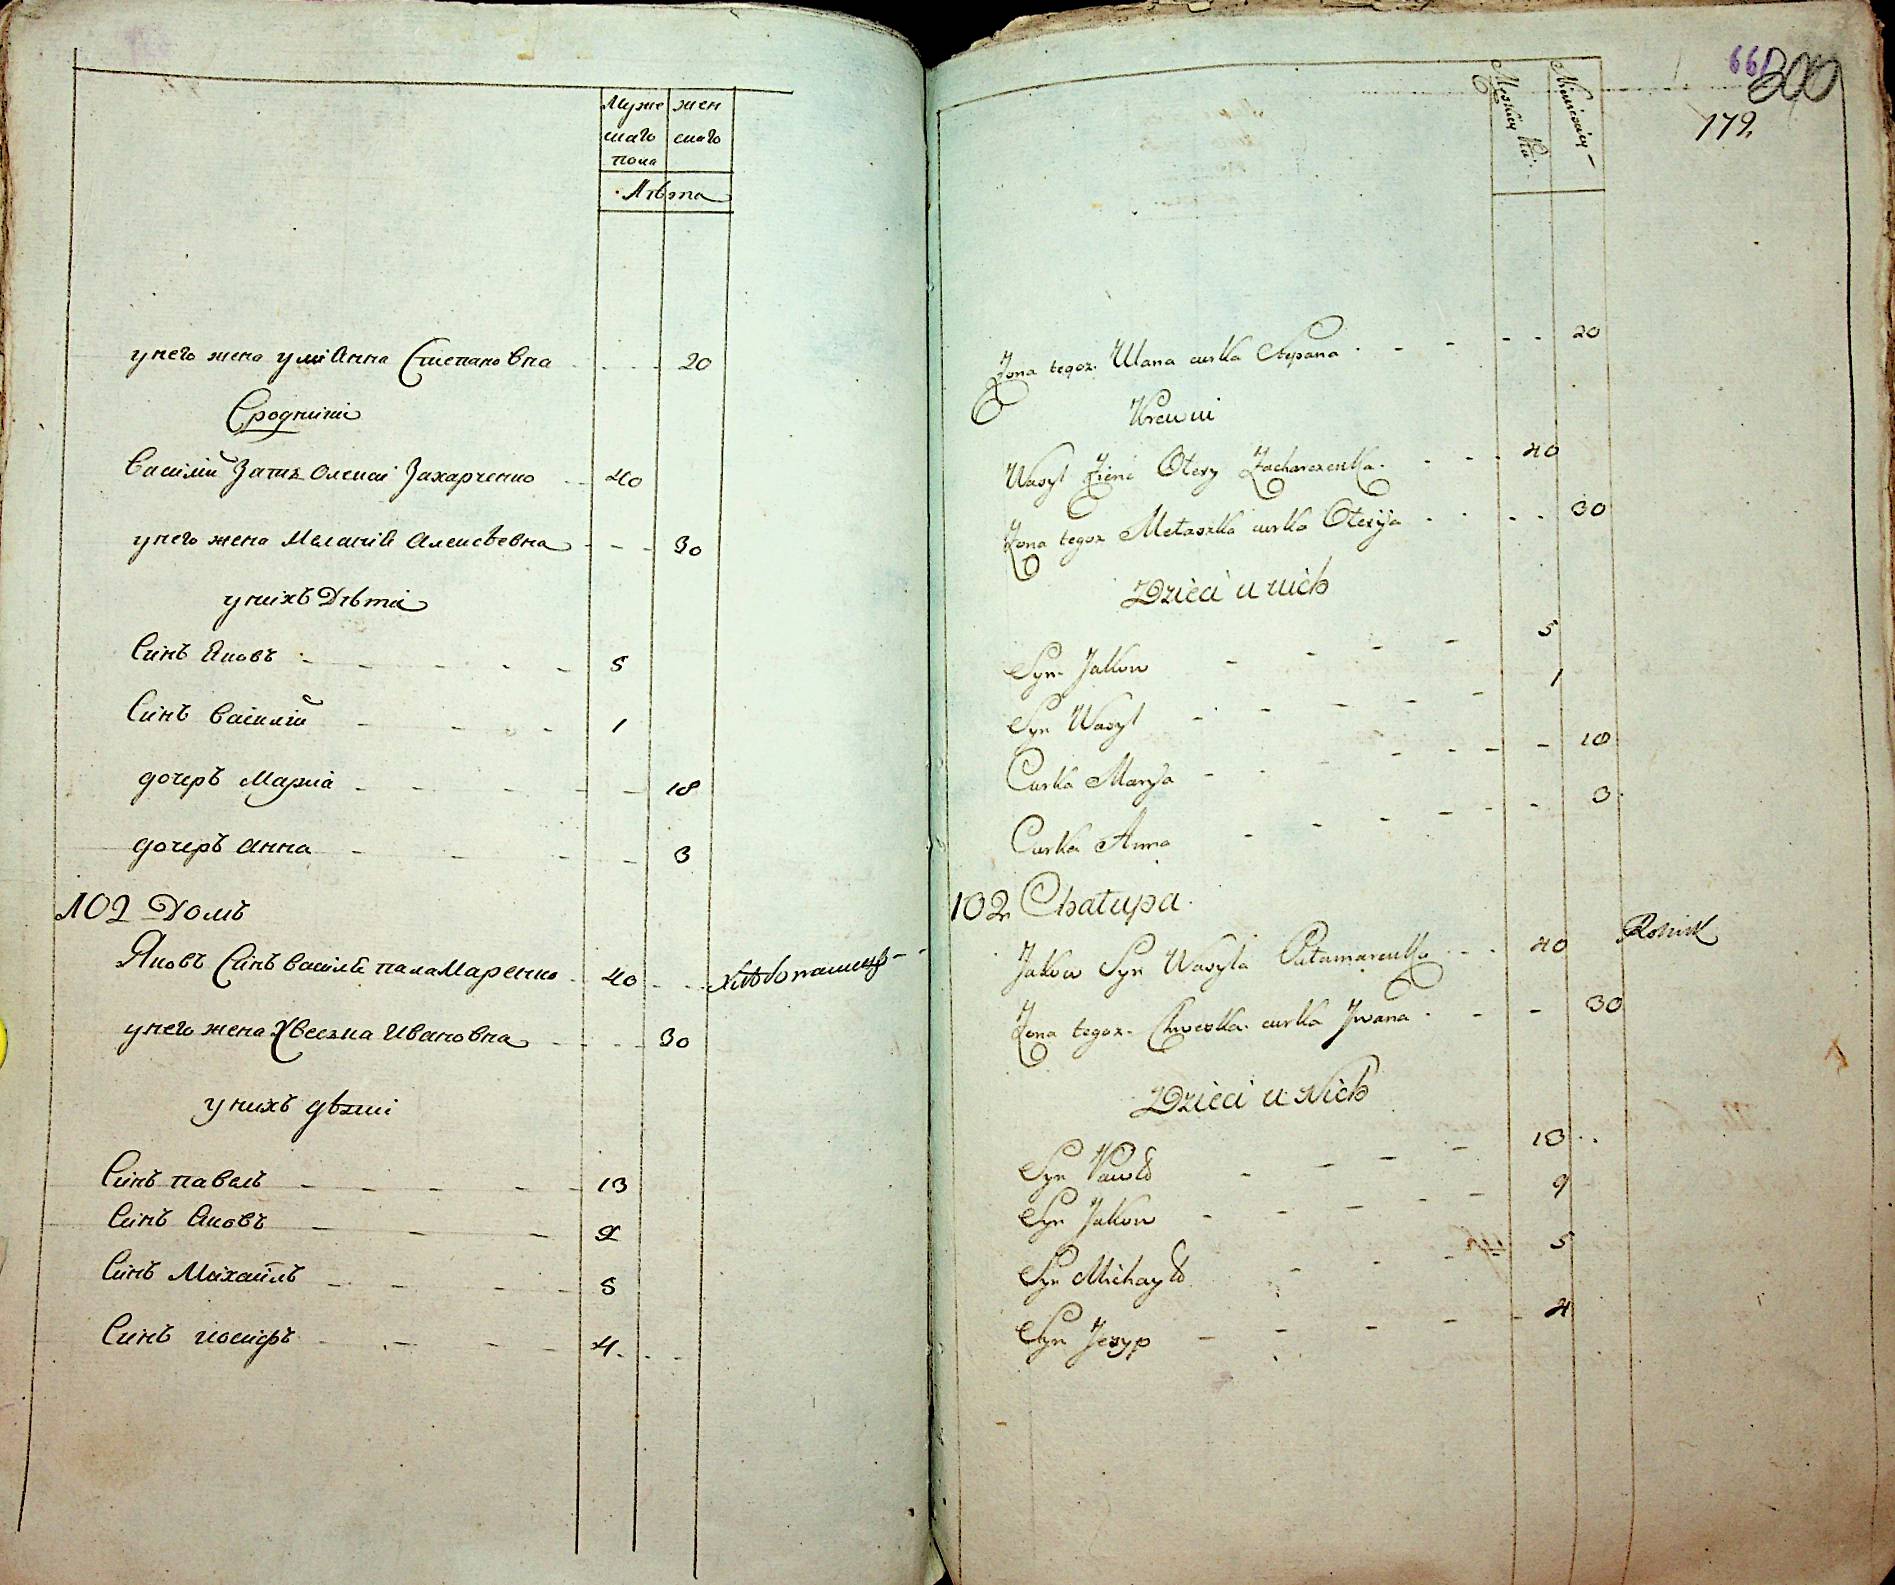 Муже жен
скаго скаго
пола
Лѣта
у него жена улиАнна Степановна 20
Сродники
Василий Зать Олекси Захарченко 40
у него жена Меланія Алексѣевна 30
у нихъ Дѣти
Синъ Яковъ 5
Синъ Василій 1
дочеръ Марія 10
дочеръ Анна 3
102 Домъ
Яковъ Синъ Василія паламаренко 40 хлѣбопашецъ
у него жена Хвеска Ивановна 30
у нихъ дѣти
Синъ павелъ 13
Синъ Яковъ 9
Синъ Михаилъ 5
Синъ иосифъ 4
661 200
179.
Żona tegoż Ulana curka Stepana 20
Krewni
Wasyl Zieńć Olexy Zacharczenka 40
Żona tegoż Melaszka curka Olexija 30
Dzieci u nich
Syn Jakow 5
Syn Wasyl 1
Curka Marya 10
Curka Anna 3
102 Chałupa
Jakow Syn Wasyla Pałamarenko 40 Rolnik
Żona tegoż Chweska curka Jwana 30
Dzieci u Nich
Syn Pawło 13
Syn Jakow 9
Syn Michayło 5
Syn Jesyp 4